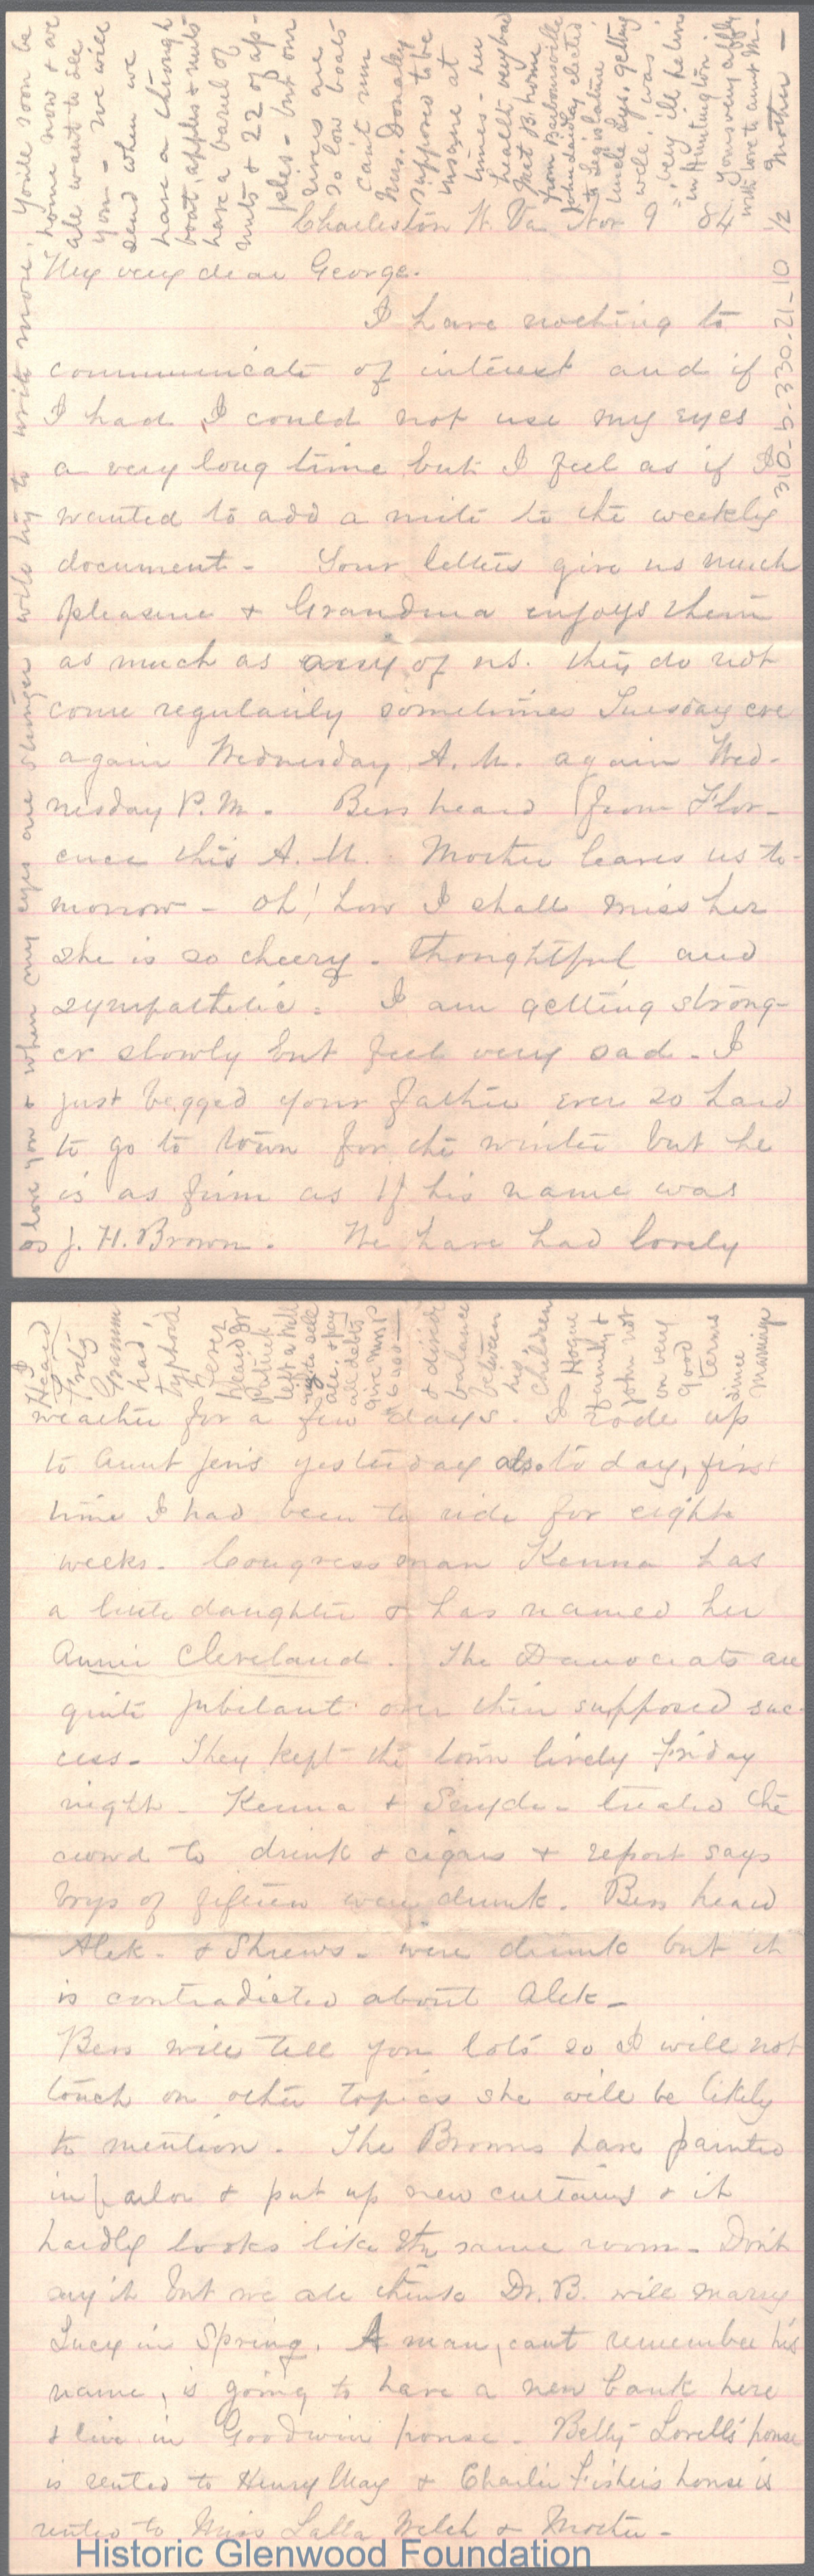 Charleston W. Va Nov 9 84
My very dear George.
I have nothing to
communicate of interest and if
I had, I could not use my eyes
a very long time but I feel as if I
wanted to add a mite to the weekly
document - Your letters give us much
pleasure & Grandma enjoys them
as much as any of us. they do not
come regularily sometimes Tuesday eve
again Wednesday A.M. again Wed-
nesday P.M. Bess heard from Flor-
ence this A.M. Mother leaves us to-
morrow - Oh! how I shall miss her
she is so cheery - thoughtful and
sympathetic - I am getting strong-
er slowly but feel very sad - I
just begged your father ever so hard
to go to town for the winter but he
is as firm as if his name was
J. H. Brown. We have had lovely
I love you & when my eyes are stronger will try to write more. You'll soon be
home now & we
all want to see
you - we will
send when we
have a through
boat, apples & nuts
have a barrel of
nuts & 22 of ap-
ples - but our
rivers are
so low boats
can't run
Mrs. Donally
supposed to be
insane at
times - her
health very bad
met B. home
from Barboursville
John elected
to Legislature
Uncle Lys. getting
well, was
very ill he lives
in Huntington.
Yours very affly
with love to aunt M.
Mother -
1/2
310-5-330-21-10
weather for a few days. I rode up
to Aunt Jen's yesterday also to day, first
time I had been to ride for eight
weeks. Congressman Kenna has
a little daughter & has named her
Annie Cleveland. The Democrats are
quite jubilant over their supposed suc-
cess - They kept the town lively Friday
night - Kenna & treated the
crowd to drink & cigars & report says
boys of fifteen were drunk. Bess heard
Alek. & Shrews. were drunk but it
is contradicted about Alek -
Bess will tell you lots so I will not
touch on other topics she will be likely
to mention. The Browns have painted
in parlor & put up new curtains & it
hardly looks like the same room - Don't
say it but we all think Dr. B. will marry
Lucy in Spring. A man, cant remember his
name, is going to have a new bank here
& live in Goodwin house - Betty Lovell's house
is rented to Henry May & Charlie Fisher's house is
rented to Miss Lalla Welch & Mother -
I
Heard
Gramm
had
typhoid
fever
Heard
Patrick
left a will
to sell
all & pay
all debts
give Mrs P
6000
& divide
balance
between
his
children
Hogue
family &
John not
on very
good
terms
since
marriage
Historic Glenwood Foundation